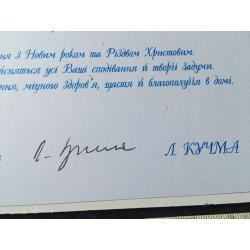 ня з Новим роком та Різдвом Христовим.
йсняться усі Ваші сподівання й творчі задуми.
ння, міцного здоров'я, щастя й благополуччя в домі.
Л. КУЧМА